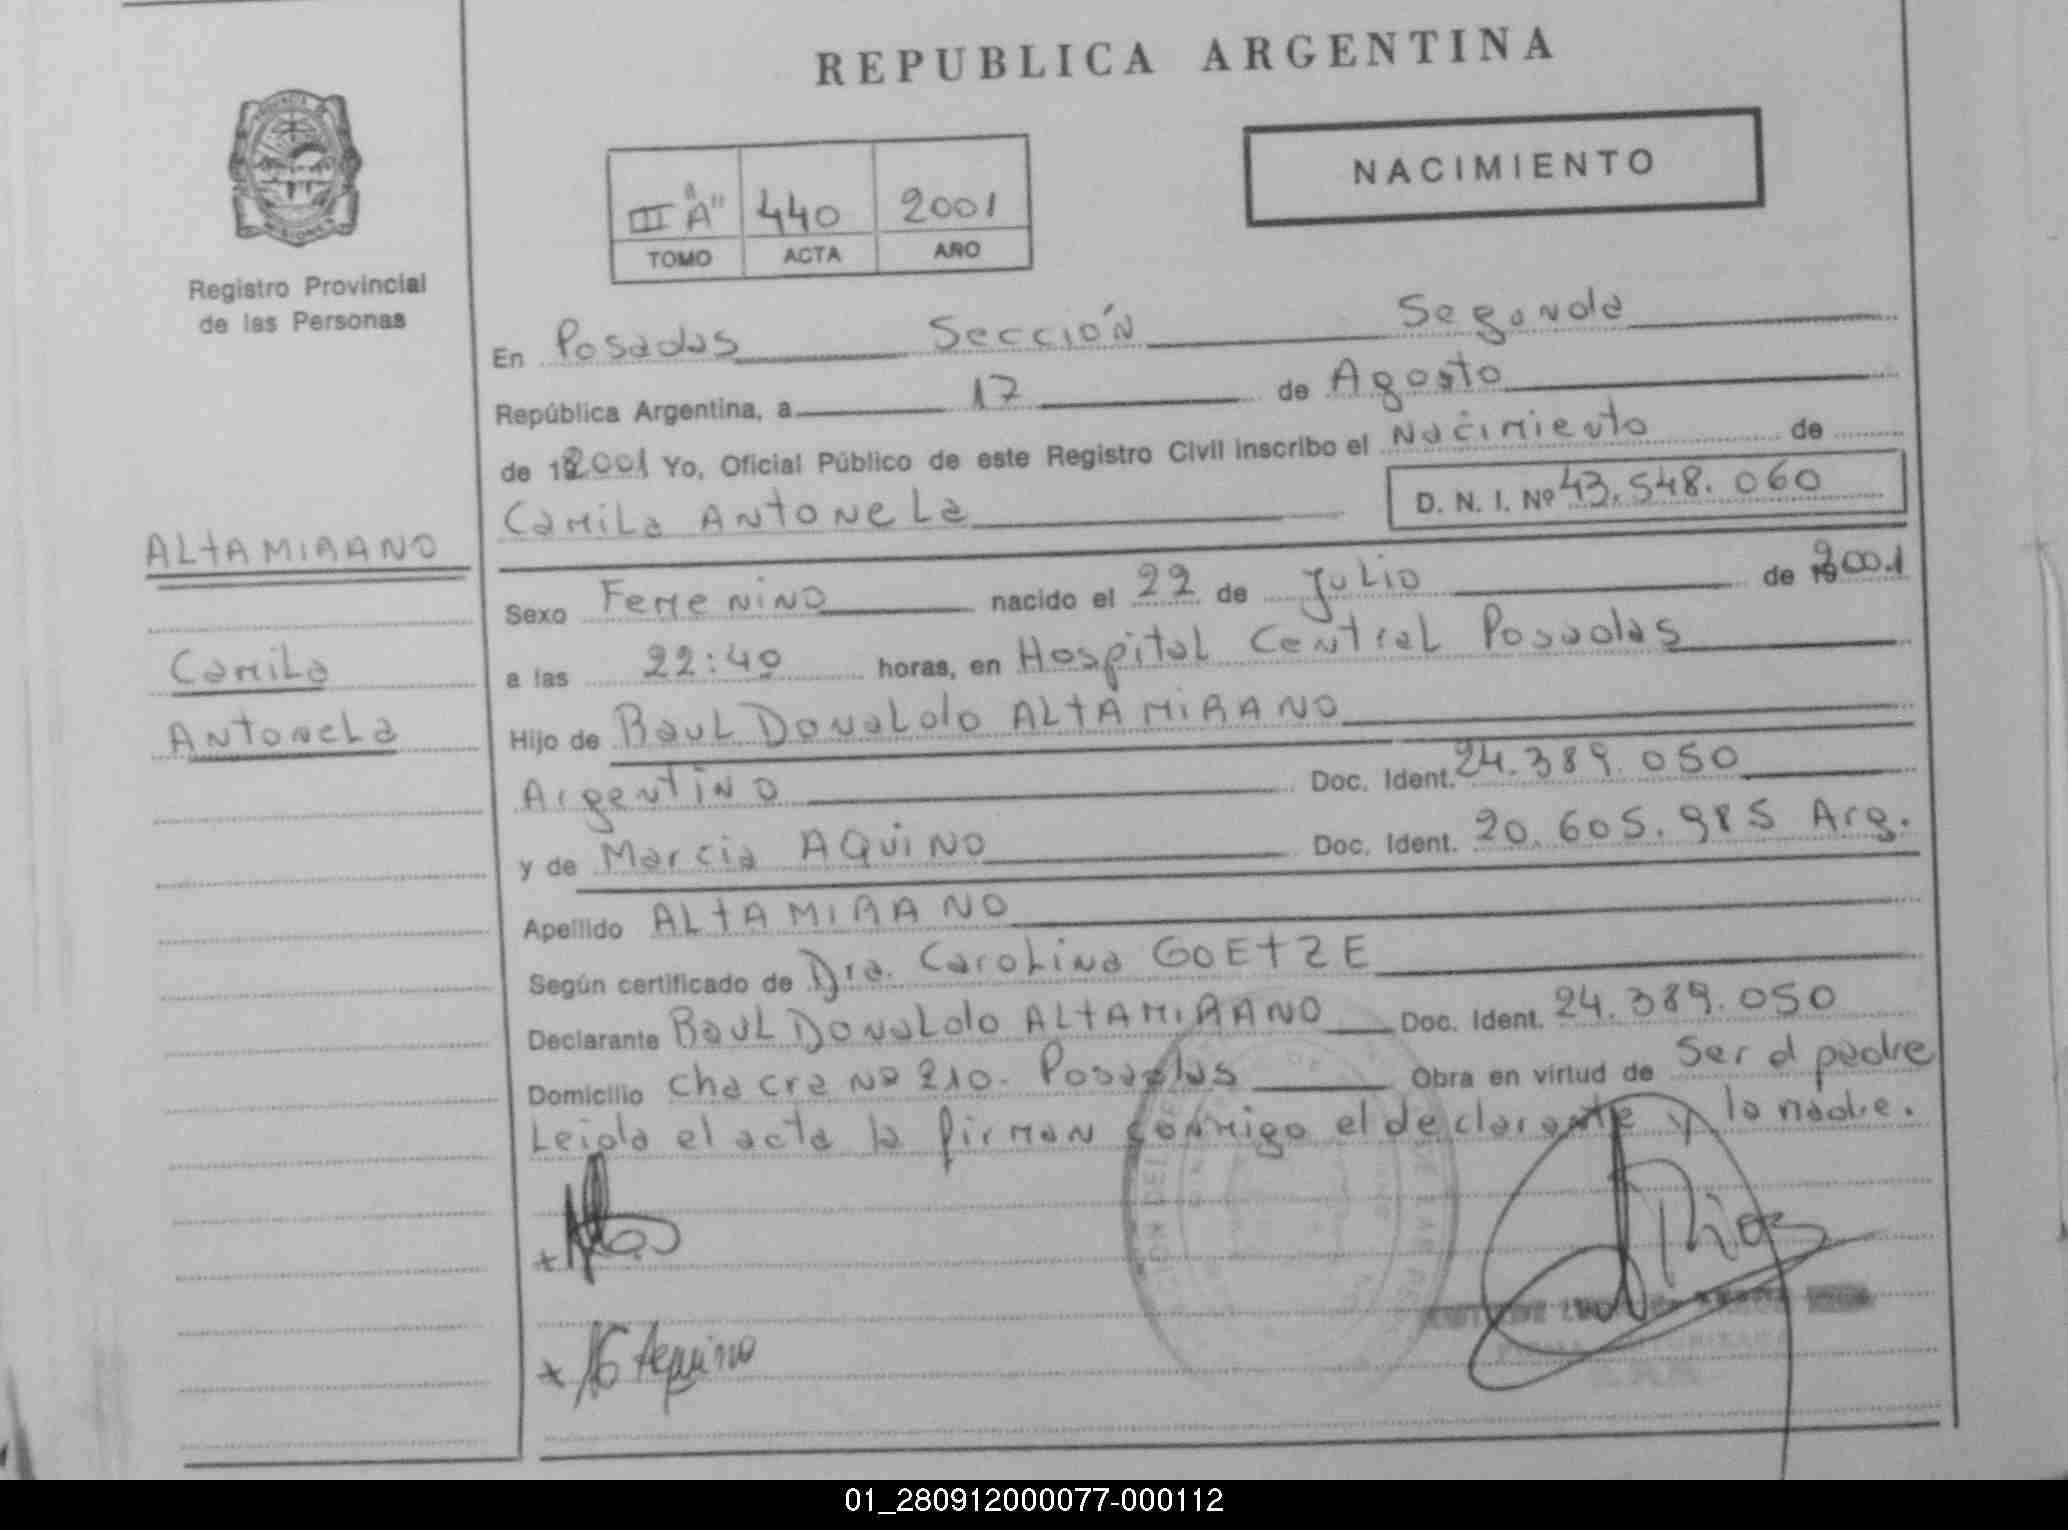 REPUBLICA ARGENTINA
NACIMIENTO
III "A" 440 2001
TOMO ACTA AÑO
Registro Provincial
de las Personas
En Posadas Sección Segunda
República Argentina, a 17 de Agosto
de 2001 Yo, Oficial Público de este Registro Civil inscribo el Nacimiento de
Camila Antonela D. N. I. Nº 43.548.060
ALTAMIRANO
Camila
Antonela
Sexo Femenino nacido el 22 de Julio de 2001
a las 22:40 horas, en Hospital Central Posadas
Hijo de Raul Donaldo ALTAMIRANO
Argentino Doc. Ident. 24.389.050
y de Marcia AQUINO Doc. Ident. 20.605.985 Arg.
Apellido ALTAMIRANO
Según certificado de Dra. Carolina GOETZE
Declarante Raul Donaldo ALTAMIRANO Doc. Ident. 24.389.050
Domicilio Chacra Nº 210. Posadas Obra en virtud de Ser el padre
Leida el acta la firman conmigo el declarante y la madre.
Aquino
01_280912000077-000112